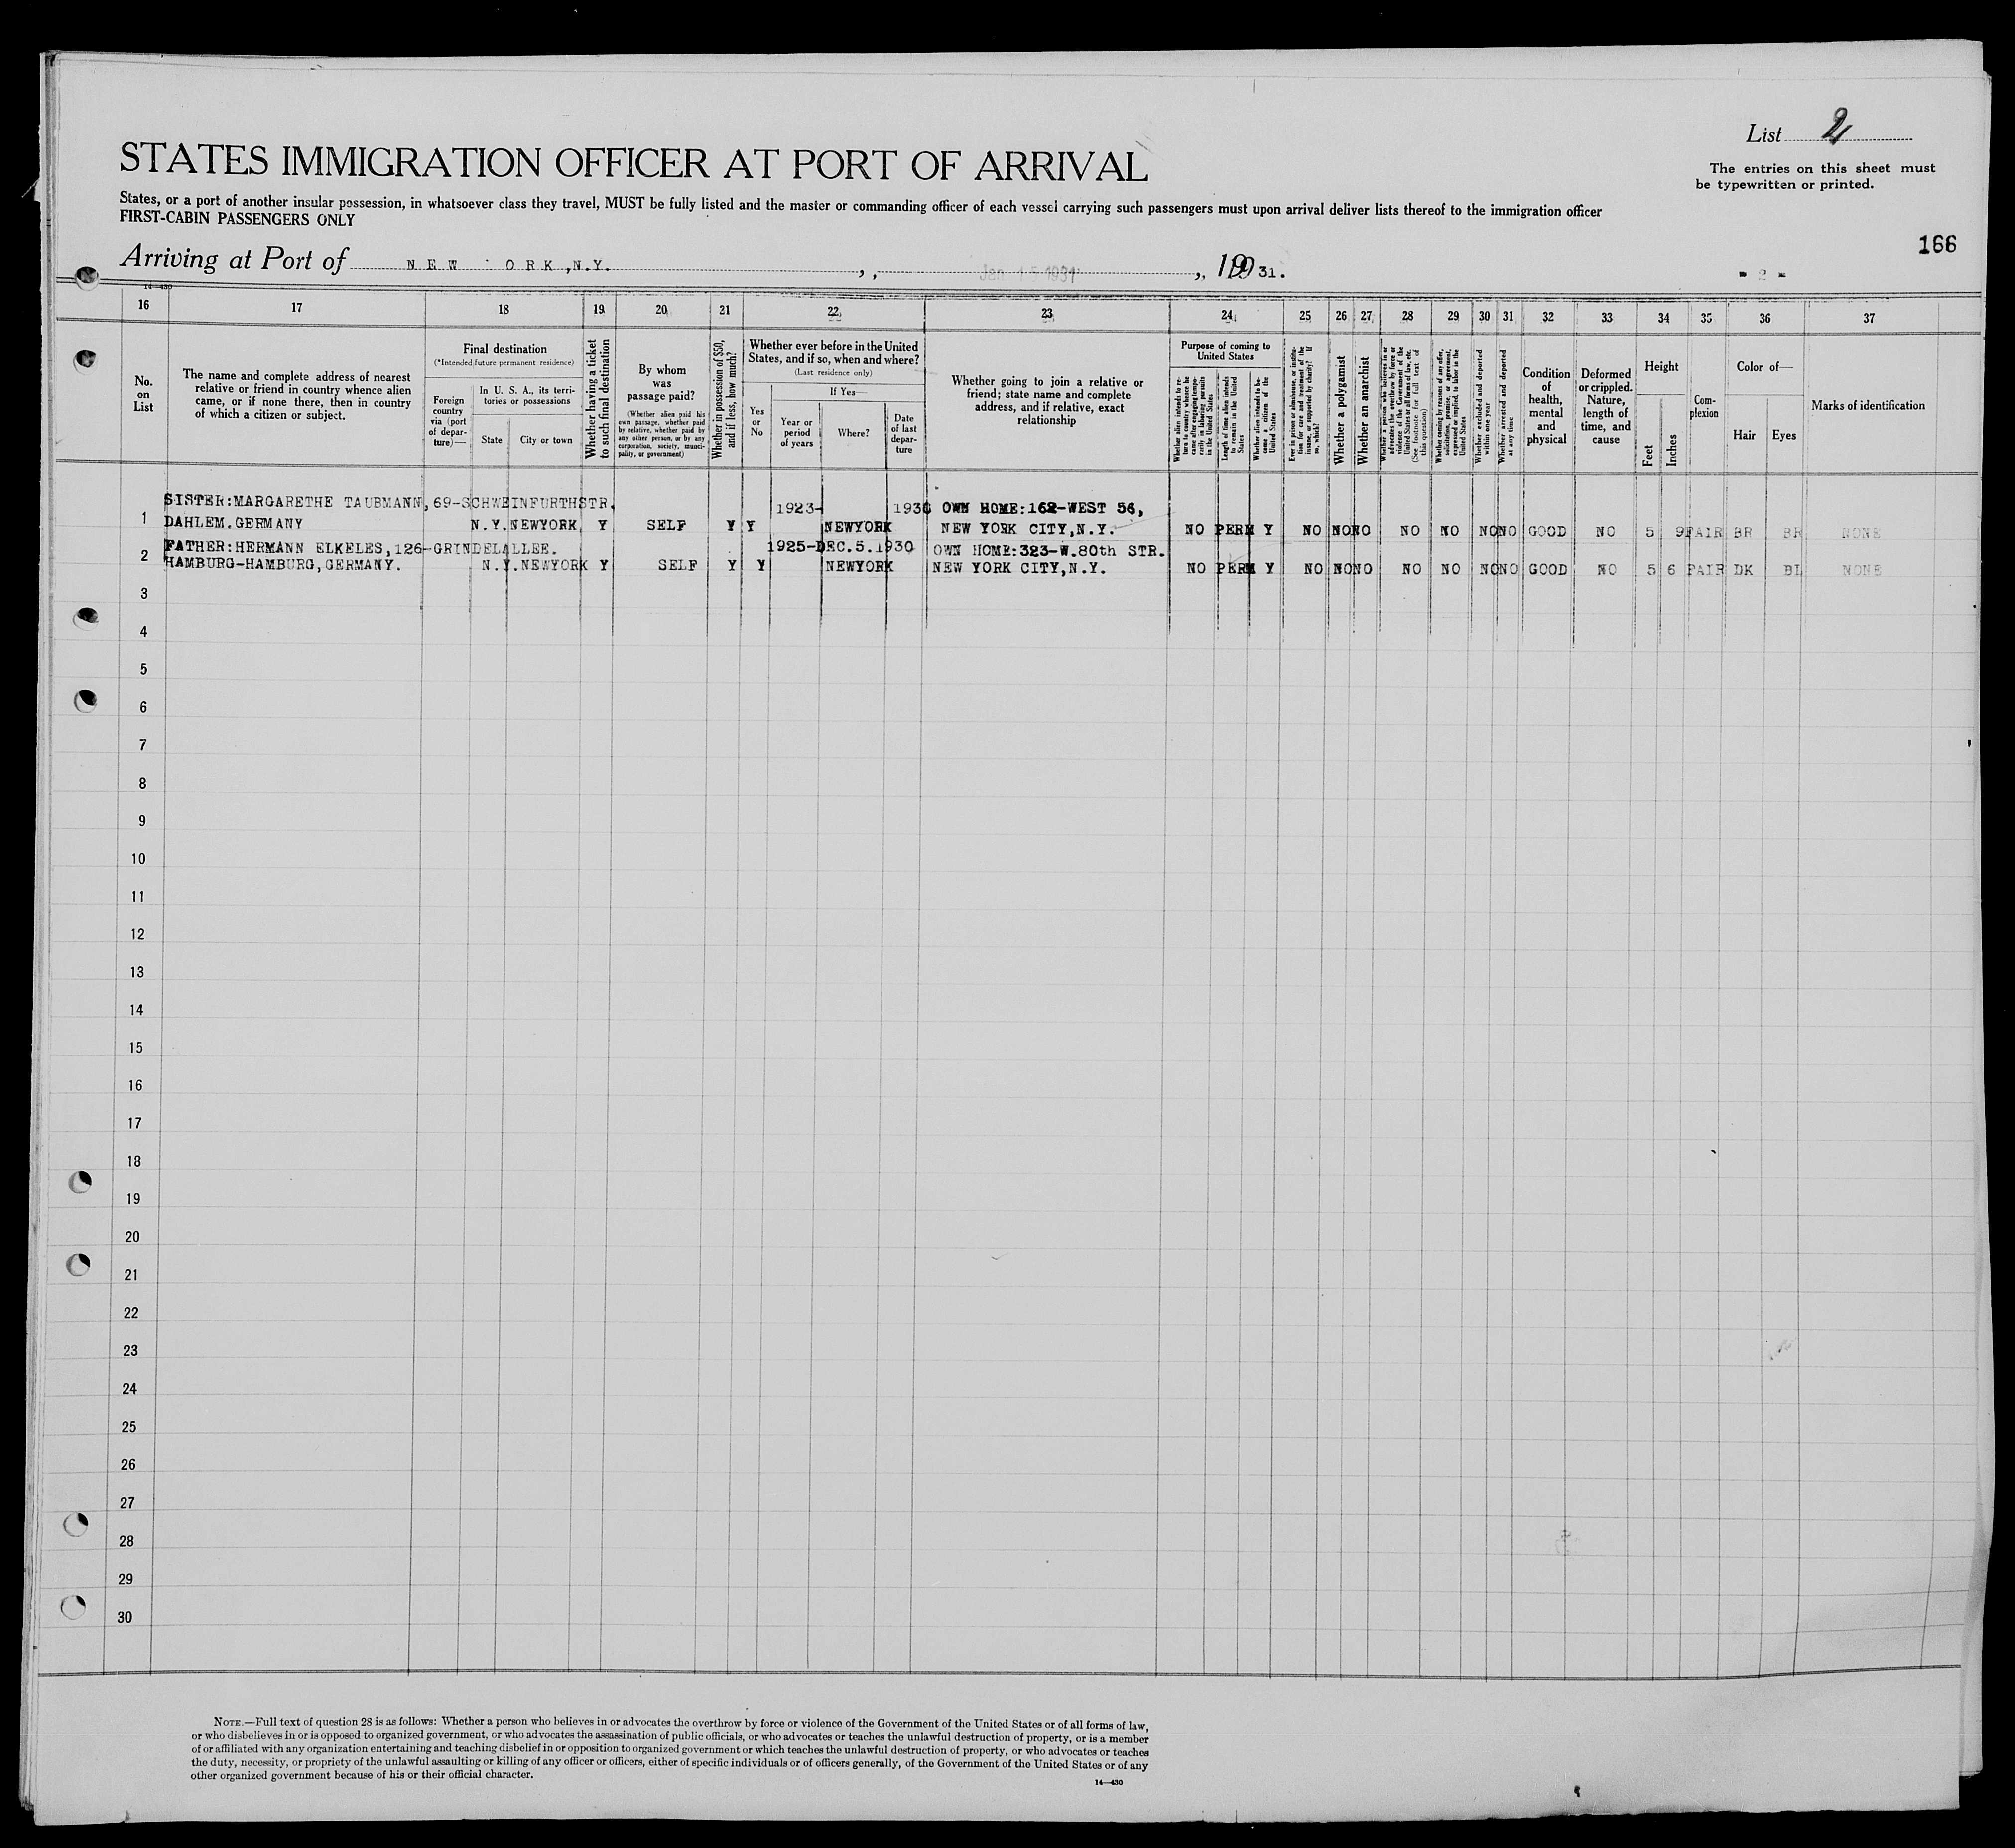 List 2
STATES IMMIGRATION OFFICER AT PORT OF ARRIVAL
The entries on this sheet must
be typewritten or printed.
States, or a port of another insular possession, in whatsoever class they travel, MUST be fully listed and the master or commanding officer of each vessel carrying such passengers must upon arrival deliver lists thereof to the immigration officer
FIRST-CABIN PASSENGERS ONLY
166
Arriving at Port of NEW ORK,N.Y. , , Jan 15 1931 , 19 31.
- 2 -
14—430
16 17 18 19 20 21 22 23 24 25 26 27 28 29 30 31 32 33 34 35 36 37
No.
on
List
The name and complete address of nearest
relative or friend in country whence alien
came, or if none there, then in country
of which a citizen or subject.
Final destination
(*Intended future permanent residence)
Foreign
country
via (port
of depar-
ture)—
In U. S. A., its terri-
tories or possessions
State
City or town
Whether having a ticket
to such final destination
By whom
was
passage paid?
(Whether alien paid his
own passage, whether paid
by relative, whether paid by
any other person, or by any
corporation, society, munici-
pality, or government)
Whether in possession of $50,
and if less, how much?
Whether ever before in the United
States, and if so, when and where?
(Last residence only)
Yes
or
No
If Yes—
Year or
period
of years
Where?
Date
of last
depar-
ture
Whether going to join a relative or
friend; state name and complete
address, and if relative, exact
relationship
Purpose of coming to
United States
Whether alien intends to re-
turn to country whence he
came after engaging tempo-
rarily in laboring pursuits
in the United States
Length of time alien intends
to remain in the United
States
Whether alien intends to be-
come a citizen of the
United States
Ever in prison or almshouse, or institu-
tion for care and treatment of the
insane, or supported by charity? If
so, which?
Whether a polygamist
Whether an anarchist
Whether a person who believes in or
advocates the overthrow by force or
violence of the Government of the
United States or all forms of law, etc.
(See footnote for full text of
this question)
Whether coming by reasons of any offer,
solicitation, promise, or agreement,
expressed or implied, to labor in the
United States
Whether excluded and deported
within one year
Whether arrested and deported
at any time
Condition
of
health,
mental
and
physical
Deformed
or crippled.
Nature,
length of
time, and
cause
Height
Feet
Inches
Com-
plexion
Color of—
Hair
Eyes
Marks of identification
SISTER:MARGARETHE TAUBMANN,69-SCHWEINFURTHSTR. 1923- 1930 OWN HOME:162-WEST 56,
1 DAHLEM.GERMANY N.Y. NEWYORK Y SELF Y Y NEWYORK NEW YORK CITY,N.Y. NO PERM Y NO NO NO NO NO NO NO GOOD NO 5 9 FAIR BR BR NONE
FATHER:HERMANN ELKELES,126-GRINDELALLEE. 1925-DEC.5.1930 OWN HOME:323-W.80th STR.
2 HAMBURG-HAMBURG,GERMANY. N.Y. NEWYORK Y SELF Y Y NEWYORK NEW YORK CITY,N.Y. NO PERM Y NO NO NO NO NO NO NO GOOD NO 5 6 FAIR DK BL NONE
3
4
5
6
7
8
9
10
11
12
13
14
15
16
17
18
19
20
21
22
23
24
25
26
27
28
29
30
NOTE.—Full text of question 28 is as follows: Whether a person who believes in or advocates the overthrow by force or violence of the Government of the United States or of all forms of law,
or who disbelieves in or is opposed to organized government, or who advocates the assassination of public officials, or who advocates or teaches the unlawful destruction of property, or is a member
of or affiliated with any organization entertaining and teaching disbelief in or opposition to organized government or which teaches the unlawful destruction of property, or who advocates or teaches
the duty, necessity, or propriety of the unlawful assaulting or killing of any officer or officers, either of specific individuals or of officers generally, of the Government of the United States or of any
other organized government because of his or their official character.
14—430